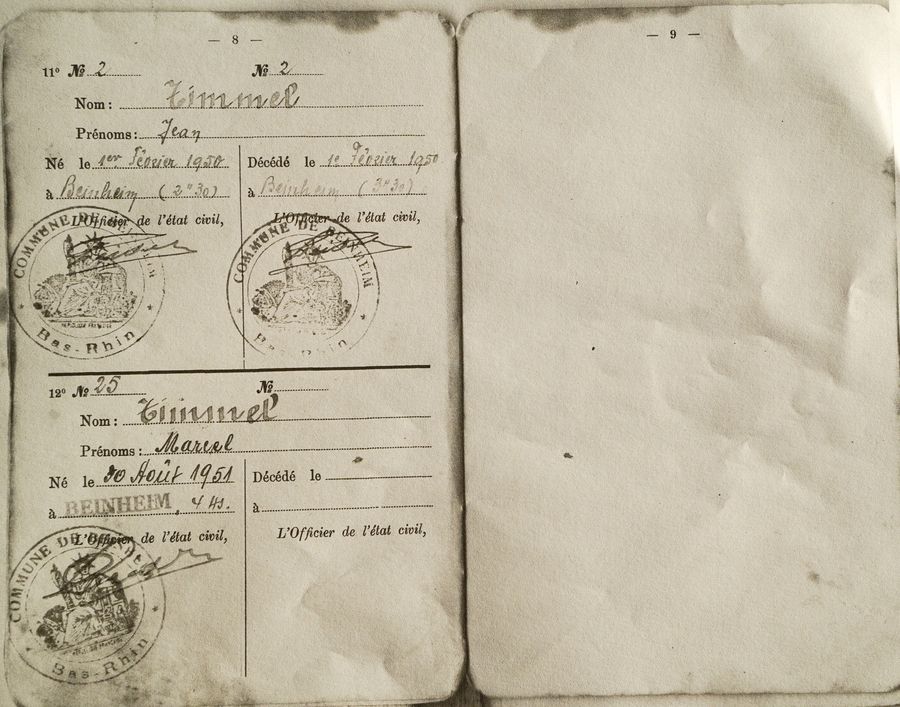 — 8 —
11° № 2 № 2
Nom: Timmel
Prénoms: Jean
Né le 1er Février 1950 Décédé le 1e Février 1950
à Beinheim (2" 30) à Beinheim (3" 30)
L'Officier de l'état civil, L'Officier de l'état civil,
COMMUNE DE BEINHEIM COMMUNE DE BEINHEIM
Bas-Rhin Bas-Rhin
12° № 25 №
Nom: Timmel
Prénoms: Marcel
Né le 30 Août 1951 Décédé le
à BEINHEIM, à
L'Officier de l'état civil, L'Officier de l'état civil,
COMMUNE DE
Bas-Rhin
— 9 —